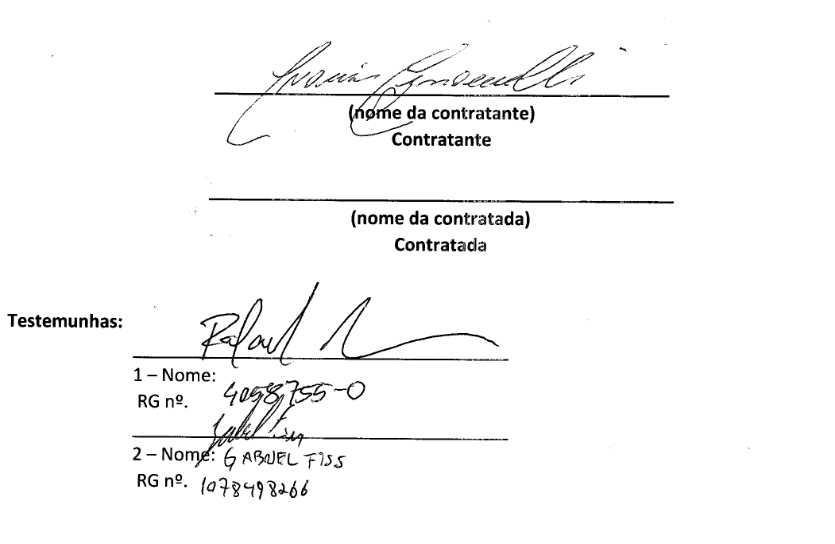 (nome da contratante)
Contratante
(nome da contratada)
Contratada
Testemunhas:
Rafael
1 – Nome:
RG nº. 4058755-0
2 – Nome: GABRIEL FISS
RG nº. 1078498266